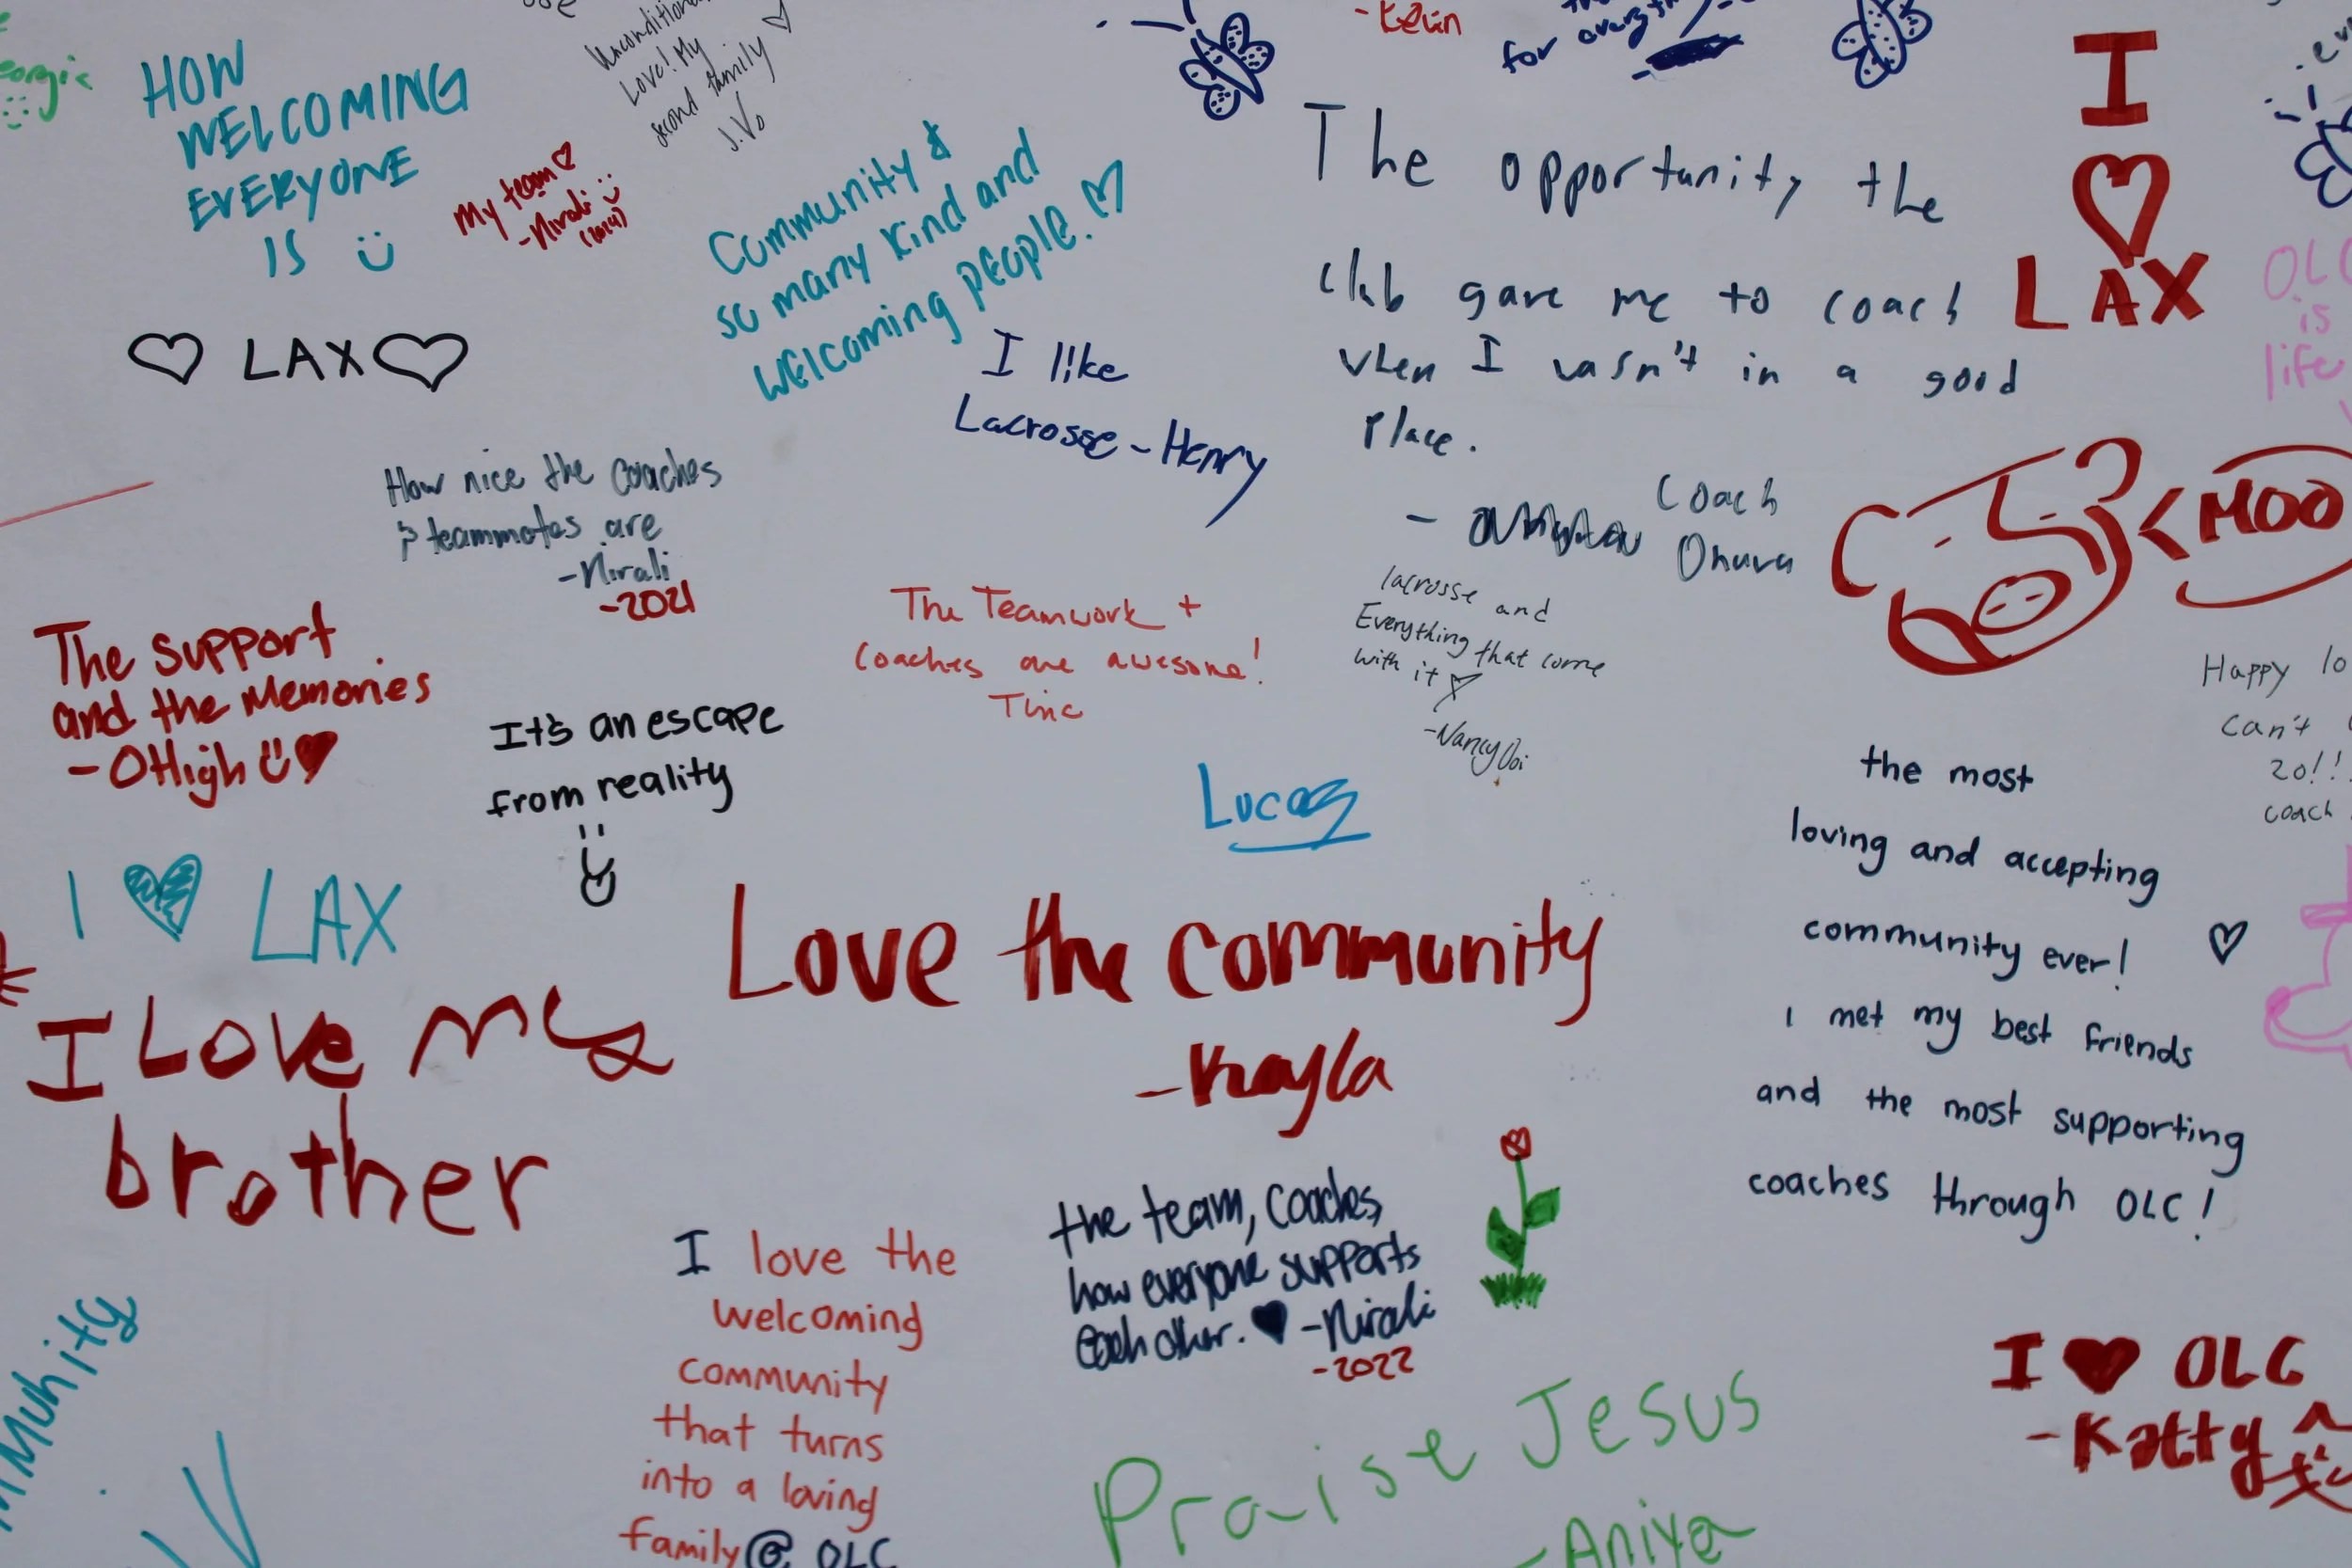 HOW
WELCOMING
EVERYONE
IS
Love! My
second family
J.V.
My team
-Nirali
(2024)
Community &
so many kind and
welcoming people.
-Kevin
for
The opportunity the
club gave me to coach
when I wasn't in a good
place.
-
Coach
I
LAX
OLC
is
life
LAX
I like
Lacrosse - Henry
How nice the coaches
& teammates are
-Nirali
-2021
MOO
The support
and the Memories
-OHigh
The Teamwork +
Coaches are awesome!
lacrosse and
Everything that come
with it
It's an escape
from reality
Lucas
Happy
Can't
20!!
coach
the most
loving and accepting
community ever!
I met my best friends
and the most supporting
coaches through OLC!
I LAX
Love the community
-Kayla
I Love my
brother
the team, coaches,
how everyone supports
each other. -Nirali
-2022
I love the
welcoming
community
that turns
into a loving
family @ OLC
Praise Jesus
-Aniya
I OLC
-Katty